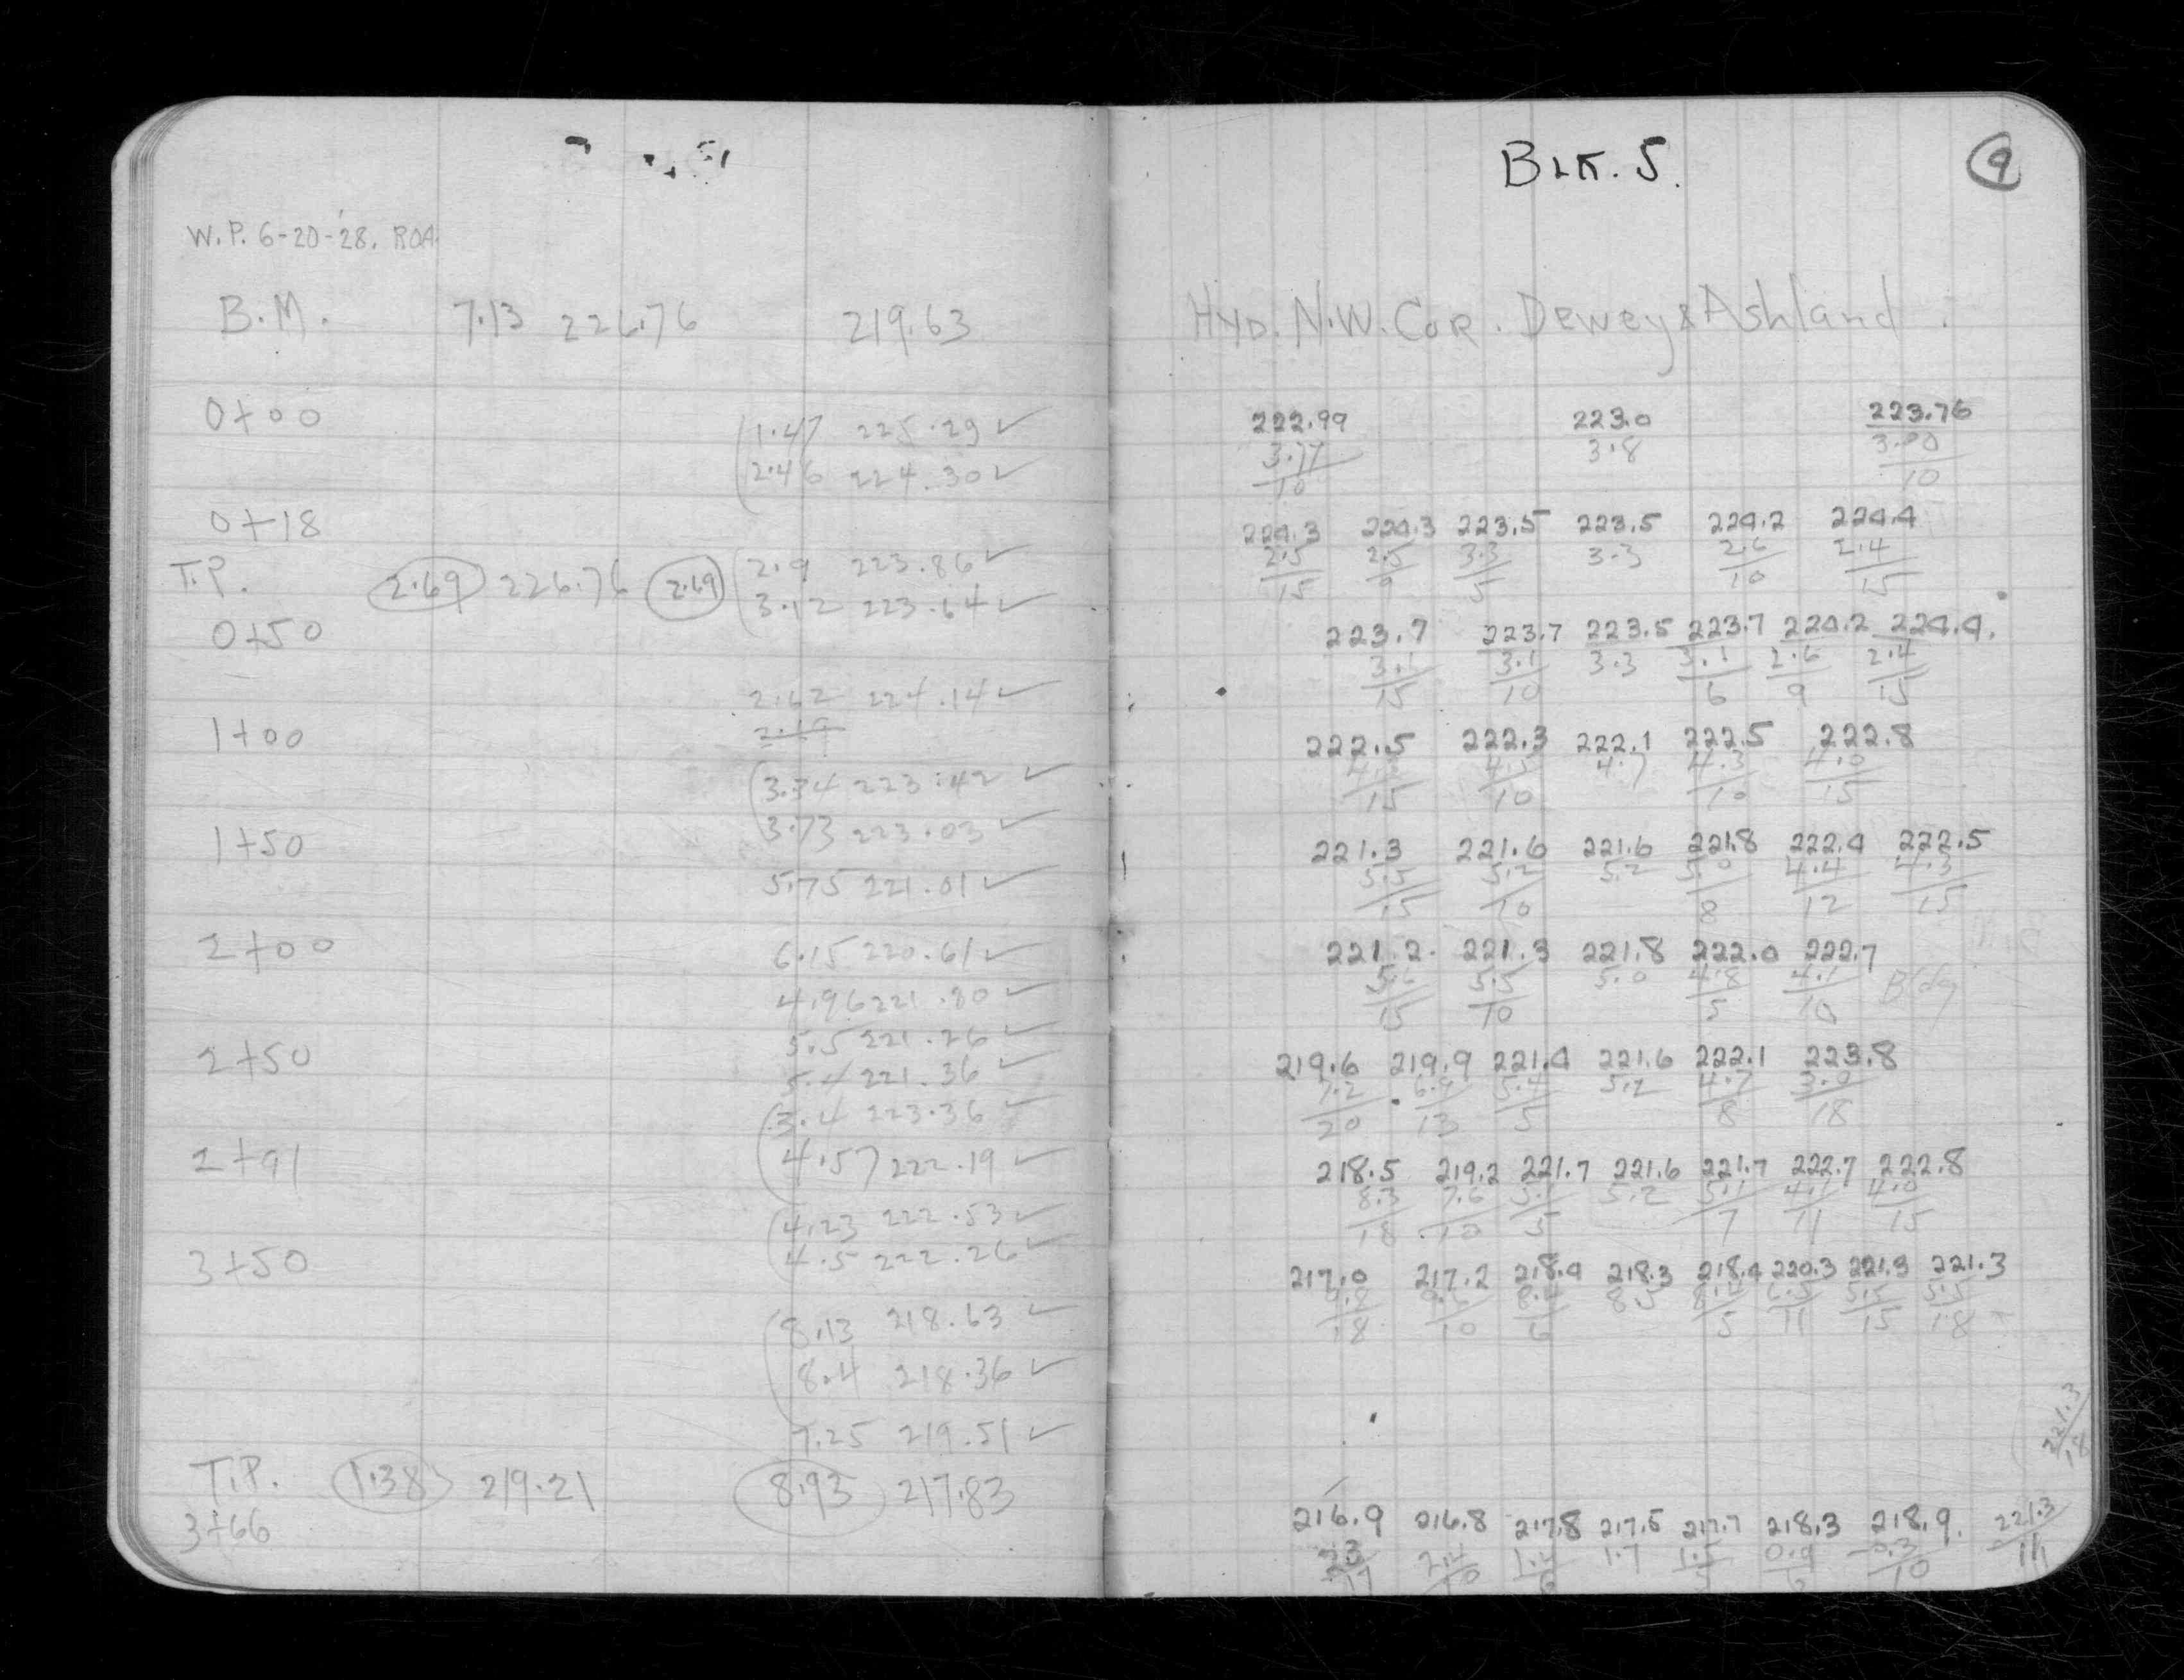 W.P. 6-20-28. ROA.
B.M. 7.13 226.76 219.63
0+00
1.47 225.29 ✓
2.46 224.30 ✓
0+18
T.P. 2.69 226.76 2.69
2.9 223.86 ✓
3.12 223.64 ✓
0+50
2.62 224.14 ✓
1+00
3.34 223.42 ✓
3.73 223.03 ✓
1+50
5.75 221.01 ✓
2+00
6.15 220.61 ✓
4.96 221.80 ✓
5.5 221.26 ✓
2+50
5.4 221.36 ✓
3.4 223.36 ✓
2+91
4.57 222.19 ✓
4.23 222.53 ✓
4.5 222.26 ✓
3+50
8.13 218.63 ✓
8.4 218.36 ✓
7.25 219.51 ✓
T.P. 1.38 219.21 8.93 217.83
3+66
BLK. 5.
9
HYD. N.W. COR. Dewey & Ashland
222.99 223.0 223.76
3.77 3.8 3.00
10 10
224.3 224.3 223.5 223.5 224.2 224.4
2.5 2.5 3.3 3.3 2.6 2.4
15 9 5 10 15
223.7 223.7 223.5 223.7 224.2 224.4.
3.1 3.1 3.3 3.1 2.6 2.4
15 10 6 9 15
222.5 222.3 222.1 222.5 222.8
4.5 4.7 4.3 4.0
15 10 10 15
221.3 221.6 221.6 221.8 222.4 222.5
5.5 5.2 5.2 5.0 4.4 4.3
15 10 8 12 15
221.2 221.3 221.8 222.0 222.7
5.6 5.5 5.0 4.8 4.1 Bldg
15 10 5 10
219.6 219.9 221.4 221.6 222.1 223.8
7.2 6.9 5.4 5.2 4.7 3.0
20 13 5 8 18
218.5 219.2 221.7 221.6 221.7 222.7 222.8
8.3 7.6 5.1 5.2 5.1 4.1 4.0
18 10 5 7 11 15
217.0 217.2 218.4 218.3 218.4 220.3 221.3 221.3
9.8 9.6 8.4 8.5 8.4 6.5 5.5 5.5
18 10 6 5 11 15 18
221.3
18
216.9 216.8 217.8 217.5 217.7 218.3 218.9. 221.3
2.3 2.4 1.4 1.7 1.5 0.9 0.3 11
17 10 6 5 6 10